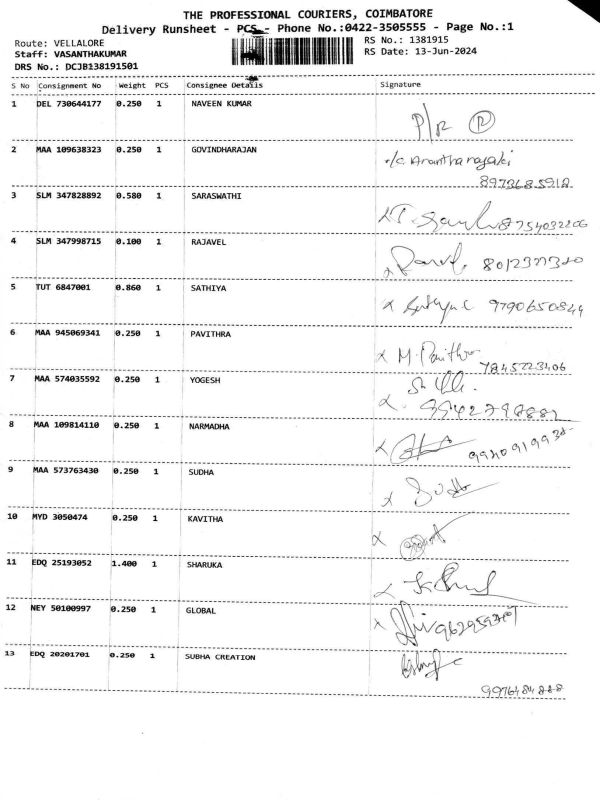 THE PROFESSIONAL COURIERS, COIMBATORE
Delivery Runsheet - PCS - Phone No.:0422-3505555 - Page No.:1
Route: VELLALORE RS No.: 1381915
Staff: VASANTHAKUMAR RS Date: 13-Jun-2024
DRS No.: DCJB138191501
S No Consignment No Weight PCS Consignee Details Signature
1 DEL 730644177 0.250 1 NAVEEN KUMAR P/R R
2 MAA 109638323 0.250 1 GOVINDHARAJAN
8973685912
3 SLM 347828892 0.580 1 SARASWATHI
4 SLM 347998715 0.100 1 RAJAVEL
5 TUT 6847001 0.860 1 SATHIYA 9790650844
6 MAA 945069341 0.250 1 PAVITHRA x M. Pavithra
7845223406
7 MAA 574035592 0.250 1 YOGESH
8 MAA 109814110 0.250 1 NARMADHA
9 MAA 573763430 0.250 1 SUDHA x Sudha
10 MYD 3050474 0.250 1 KAVITHA
11 EDQ 25193052 1.400 1 SHARUKA
12 NEY 50100997 0.250 1 GLOBAL
13 EDQ 20201701 0.250 1 SUBHA CREATION
9976484888